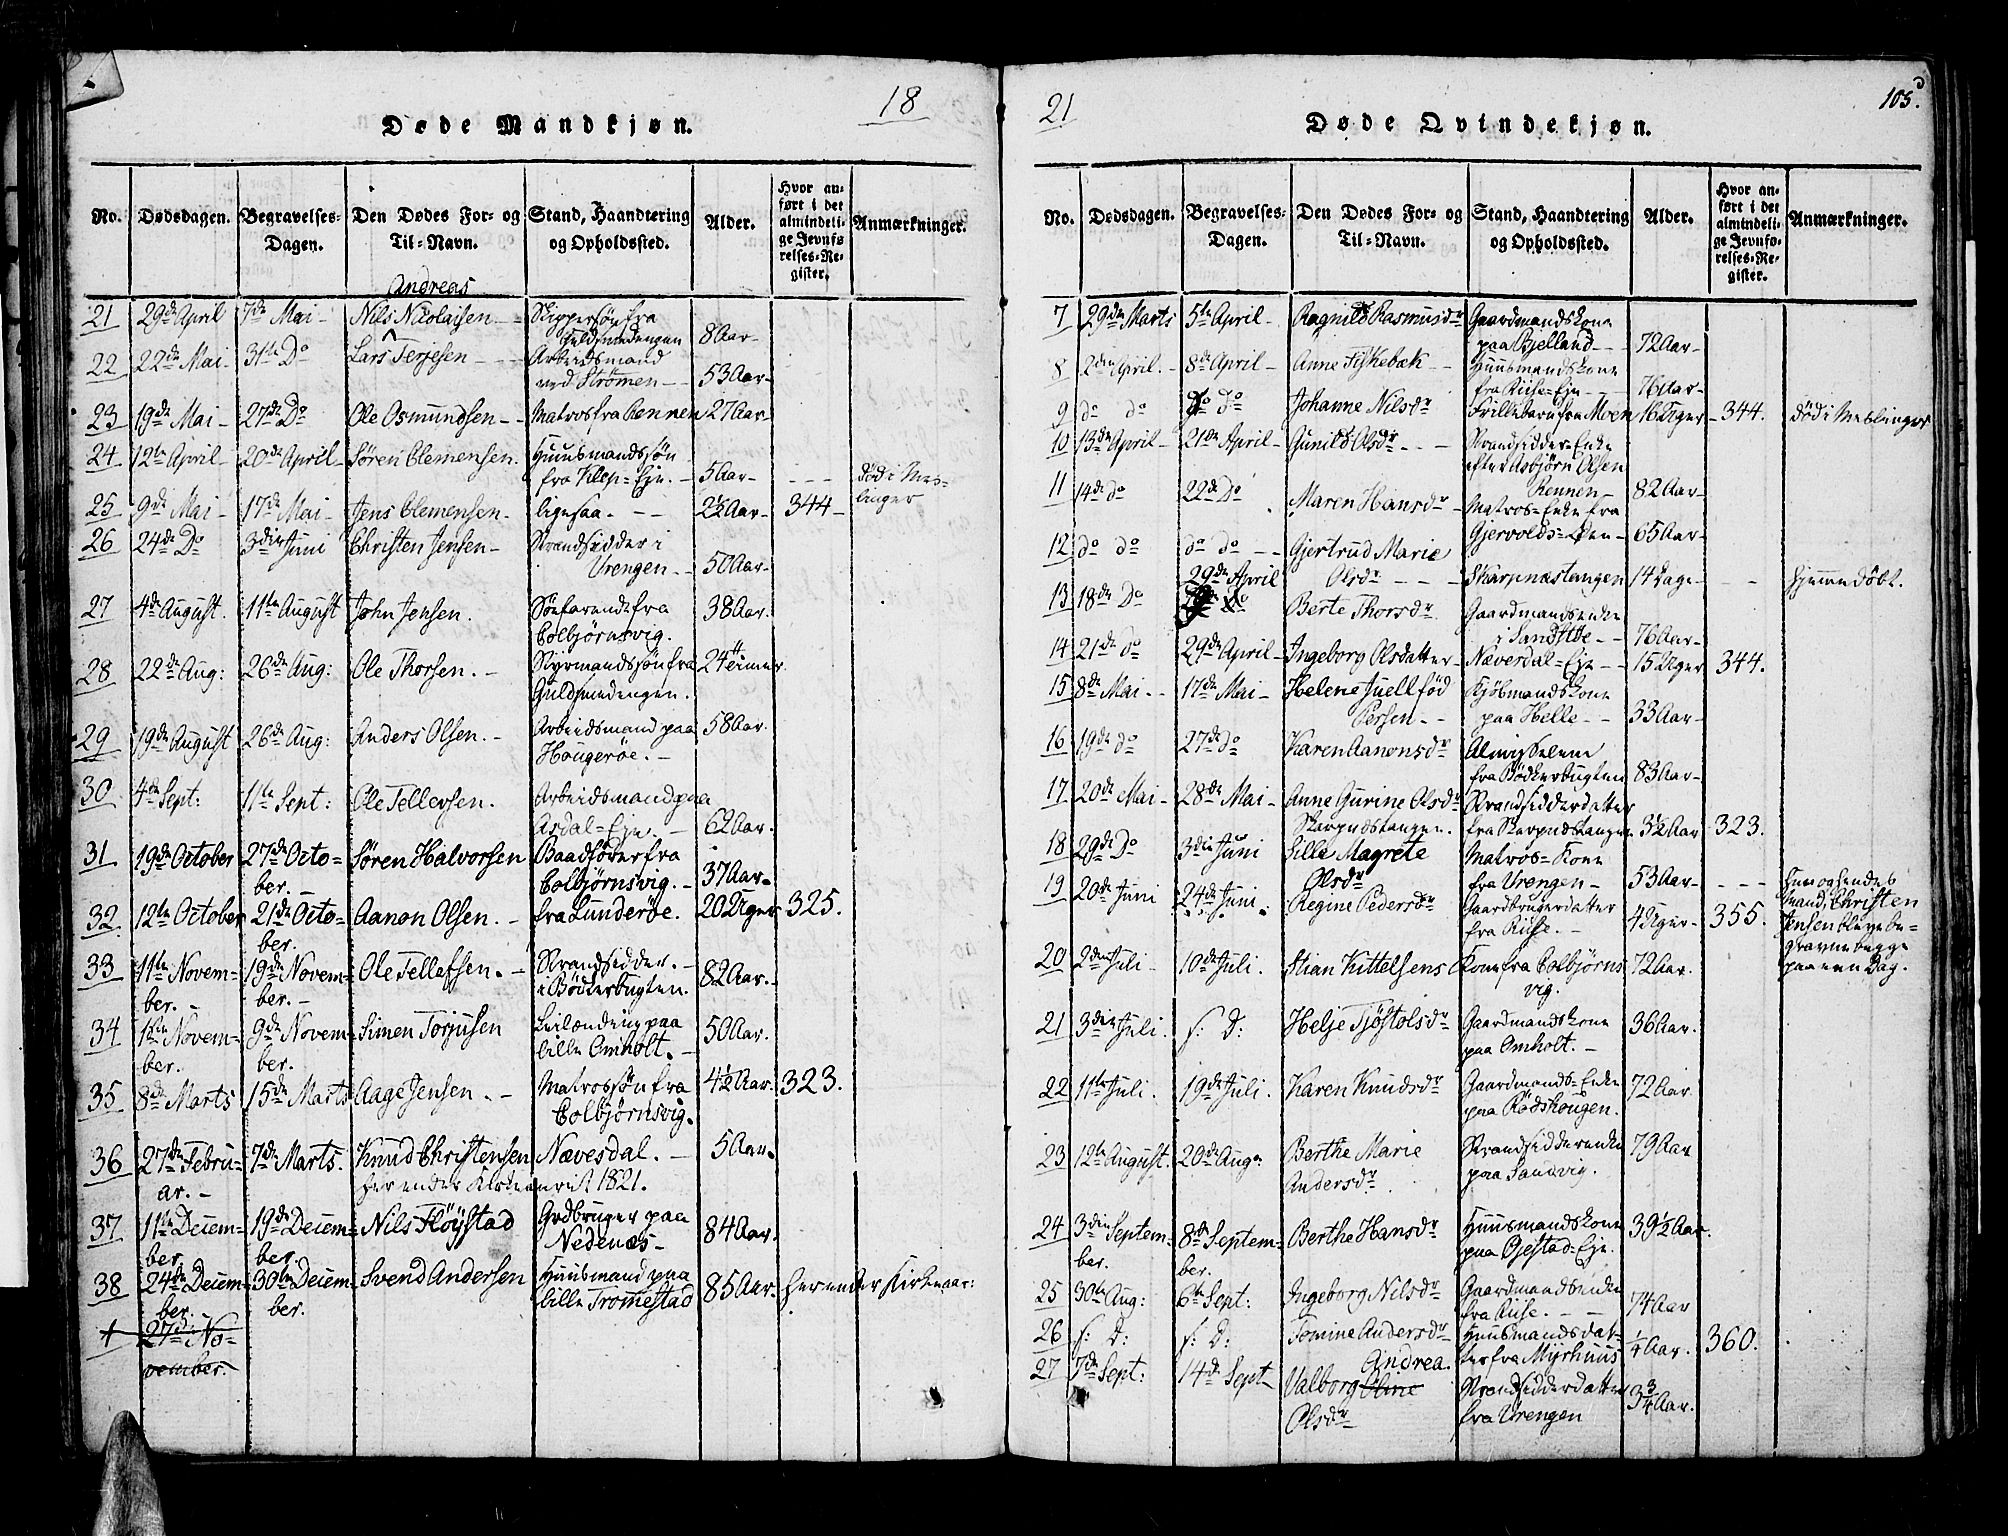 18
Døde Mandkjøn.
No.
Dødsdagen.
Begravelses-
Dagen.
Den Dødes For- og
Til-Navn.
Stand, Haandtering
og Opholdssted.
Alder.
Hvor an-
ført i det
almindeli-
ge Jevnfø
relses-Re-
gister.
Anmærkninger.
Andreas
21 29de April 7de Mai - Nils Nicolaisen - Skippersøn fra
Guldsmedengen 8 Aar -
22 22de Mai - 31te Do Lars Terjesen - - - Arbeidsmand
ved Strømen - - 53 Aar -
23 19de Mai 27de Do Ole Osmundsen - - Matros fra Rennen 27 Aar
24 12te April - 20de April - Søren Clemensen. Huusmandssøn
fra Klep-Eje. - 5 Aar - - - - død i Mes-
linger
25 9de Mai - 17de Mai - Jens Clemensen - ligesaa. - - 2½ Aar - 344 -
26 24de Do 3die Juni Christen Jensen - Strandsidder i
Vrengen - - 50 Aar -
27 4de August. 11te August John Jensen. Søefarende fra 38 Aar.
Colbjørnsvig.
28 22de Aug: 26de Aug: Ole Thorsen. - Styrmandssøn fra 24 Timer
Guldsmedengen.
29 19de August 26de Aug: Anders Olsen. - Arbeidsmand paa 58 Aar.
Hougerøe. -
30 4de Sept: 11te Sept: Ole Tellevsen. Arbeidsmand paa
Asdal-Eje. - 62 Aar.
31 19de October 27de Octo- Søren Halvorsen Baadfører fra
ber. Colbjørnsvig. - 37 Aar -
32 12te October 21de Octo- Aanon Olsen. - fra Lunderøe. 20 Uger 325.
ber.
33 11te Novem- 19de Novem- Ole Tellefsen. - Strandsidder. -
ber. - ber. - i Bödkerbugten. 82 Aar. -
34 1ste Novem- 9de Novem- Simen Torjusen Leilænding paa 50 Aar.
ber. ber. lille Omholt. -
35 8de Marts 15de Marts Aage Jensen. - Matrossøn fra 4½ Aar. 323.
Colbjørnsvig.
36 27de Febru- 7de Marts. Knud Christensen Nævesdal. - 5 Aar.
ar. - her ender Kirkeaaret 1821.
37 11te Decem- 19de Decem- Nils Fløystad Grdbruger paa 84 Aar.
ber. ber. Nedenæs -
38 24de Decem- 30te Decem- Svend Andersen Huusmand paa 85 Aar. her ender Kirkeaar:
ber. ber. lille Tromestad
+ 27de No-
vember.
21
105.
Døde Qvindekjøn.
No.
Dødsdagen.
Begravelses-
Dagen.
Den Dødes For- og
Til-Navn.
Stand, Haandtering
og Opholdssted.
Alder.
Hvor an-
ført i det
almindeli-
ge Jevnfø-
relses-Re-
gister.
Anmærkninger.
7 29de Marts 5te April - Ragnild Rasmusdr Gaardmandskone
paa Bjelland - 72 Aar -
8 2den April. - 8de April - Anne Fiskebæk - - Huusmandskone
fra Riise-Eje - - 76 Aar -
9 do do do do Johanne Nilsdr Spillebarn fra Moen 16 Uger - 344. død i Meslinger
10 13de April - 21de April - Gunild Olsdr - - - Strandsidder-Enke
efter Asbjørn Olsen
Rennen - 82 Aar -
11 14de do 22de do Maren Hansdr - Matros-Enke fra
Gjervolds-Øen - 65 Aar -
12 do do do do - - Gjertrud Marie
29de April Olsdr - - - Skarpnæstangen 14 Dage - - - hjemmedöbt.
13 18de Do Berte Thorsdr Gaardmandsenke
i Sandfløe - - 76 Aar -
14 21de do 29de April - Ingeborg Olsdatter - Næverdal-Eje - - 15 Uger 344.
15 8de Mai - - 17de Mai - Helene Juell född Kjøbmandskone
Persen - - paa Helle - - 33 Aar -
16 19de do 27de do Karen Aanonsdr Almisselem
fra Bödkerbugten 83 Aar -
17 20de Mai - 28de Mai - Anne Gurine Olsdr Strandsidderdatter
Skarpnæstangen. fra Skarpnæstangen 3½ Aar 323.
18 29de Do 3die Juni Sille Magrete Matros-Kone
Olsdr fra Vrengen - 53 Aar - - - - Hun og hendes
Mand, Christen
Jensen bleve be-
gravne begge
paa een Dag.
19 20de Juni 24de Juni. Regine Pedersdr Gaardbrugerdatter
fra Riise. - 4 Uger - 355.
20 2den Juli - 10de Juli. Stian Kittelsens Kone fra Colbjørns 72 Aar.
vig.
21 3die Juli. s: D: Helje Tjøstolsdr Gaardmandskone 36 Aar.
paa Omholt. -
22 11te Juli. 19de Juli. Karen Knudsdr Gaardmands-Enke 72 Aar
paa Rødshougen.
23 12te August. 20de Aug: Berthe Marie Strandsidderenke 79 Aar
Andersdr paa Sandvig.
24 3die Septem- 8de Septem- Berthe Hansdr Huusmandskone 39½ Aar.
ber. ber. paa Øjestad-Eje.
25 30te Aug: 6te Sept: Ingeborg Nilsdr Gaardmandsenke
fra Riise. - - 74 Aar
26 s: D: s: D: Tomine Andersdr Huusmandsdat-
ter fra Myrhuus ¼ Aar. 360.
27 7de Sept: 14de Sept Andrea.
Valborg Oline Strandsidderdatter
Olsdr fra Vrengen 3¾ Aar.